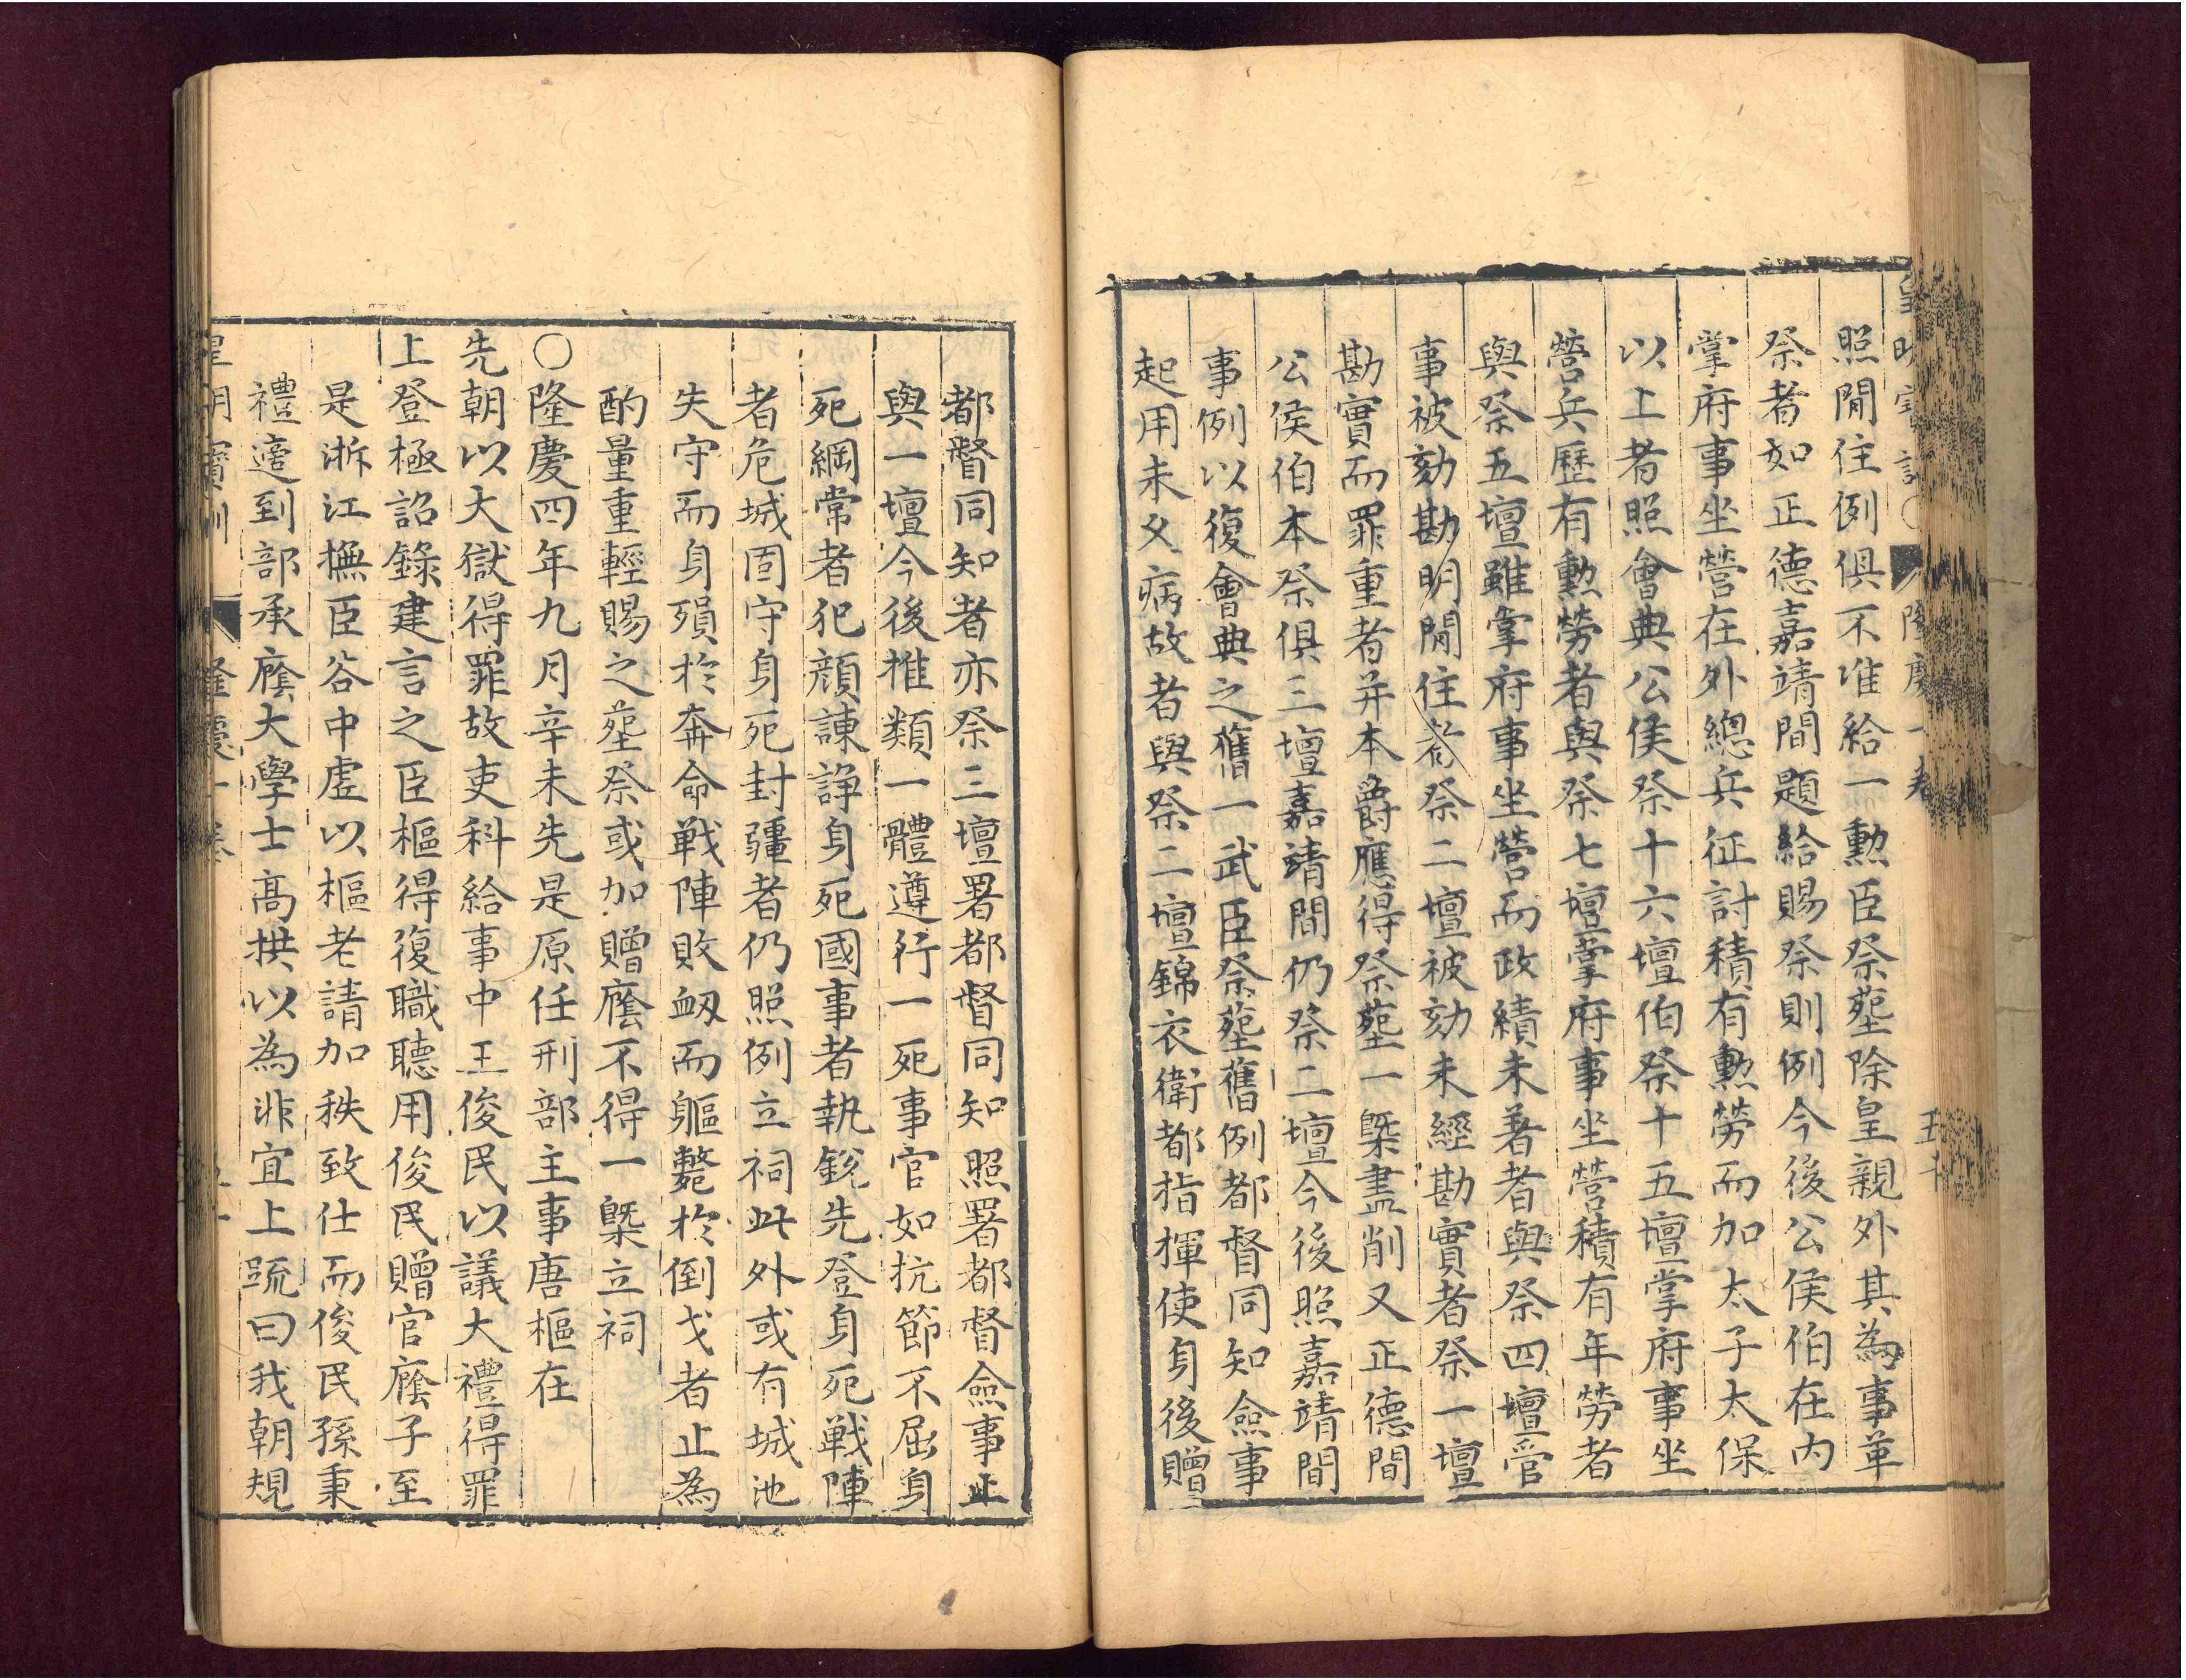 皇明寶訓 隆慶一卷 五十
照閒住例俱不准給一勲臣祭塟除皇親外其為事革
祭者如正德嘉靖間題給賜祭則例今後公侯伯在内
掌府事坐營在外總兵征討積有勲勞而加太子太保
以上者照會典公侯祭十六壇伯祭十五壇掌府事坐
營兵歷有勲勞者與祭七壇掌府事坐營積有年勞者
與祭五壇雖掌府事坐營而政績未著者與祭四壇管
事被劾勘明閒住者祭二壇被劾未經勘實者祭一壇
勘實而罪重者并本爵應得祭塟一槩盡削又正德間
公侯伯本祭俱三壇嘉靖間仍祭二壇今後照嘉靖間
事例以復會典之舊一武臣祭塟舊例都督同知僉事
起用未久病故者與祭二壇錦衣衛都指揮使身後贈
都督同知者亦祭三壇署都督同知照署都督僉事止
與一壇今後推類一體遵行一死事官如抗節不屈身
死綱常者犯顔諫諍身死國事者執銳先登身死戰陣
者危城固守身死封疆者仍照例立祠此外或有城池
失守而身殞於奔命戰陣敗衂而軀斃於倒戈者止為
酌量重輕賜之塟祭或加贈廕不得一槩立祠
〇隆慶四年九月辛未先是原任刑部主事唐樞在
先朝以大獄得罪故吏科給事中王俊民以議大禮得罪
上登極詔錄建言之臣樞得復職聽用俊民贈官廕子至
是浙江撫臣谷中虛以樞老請加秩致仕而俊民孫秉
禮適到部承廕大學士高拱以為非宜上疏曰我朝規
皇明寶訓 隆慶一卷